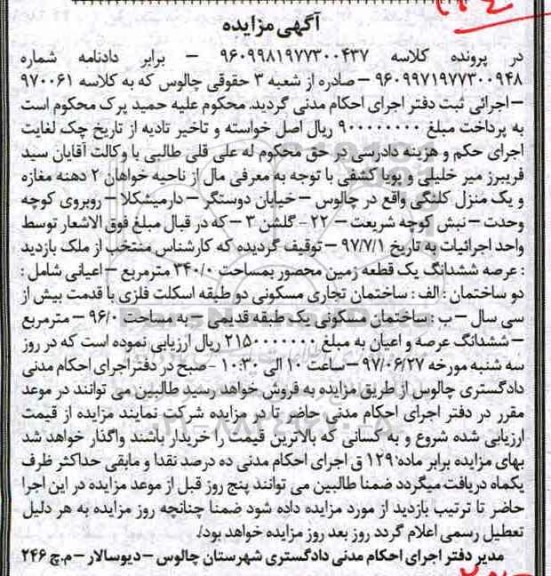 آگهی مزایده
در پرونده کلاسه ۹۶۰۹۹۸۱۹۷۷۳۰۰۴۳۷ – برابر دادنامه شماره
۹۶۰۹۹۷۱۹۷۷۳۰۰۹۴۸ – صادره از شعبه ۳ حقوقی چالوس که به کلاسه ۹۷۰۰۶۱
– اجرائی ثبت دفتر اجرای احکام مدنی گردید. محکوم علیه حمید پرک محکوم است
به پرداخت مبلغ ۹۰۰۰۰۰۰۰۰ ریال اصل خواسته و تاخیر تادیه از تاریخ چک لغایت
اجرای حکم و هزینه دادرسی در حق محکوم له علی قلی طالبی با وکالت آقایان سید
فریبرز میر خلیلی و پویا کشفی با توجه به معرفی مال از ناحیه خواهان ۲ دهنه مغازه
و یک منزل کلنگی واقع در چالوس – خیابان دوستگر – دارمیشکلا – روبروی کوچه
وحدت – نبش کوچه شریعت – ۲۲ – گلشن ۳ – که در قبال مبلغ فوق الاشعار توسط
واحد اجرائیات به تاریخ ۹۷/۷/۱ – توقیف گردیده که کارشناس منتخب از ملک بازدید
: عرصه ششدانگ یک قطعه زمین محصور بمساحت ۳۴۰/۰ مترمربع – اعیانی شامل :
دو ساختمان : الف : ساختمان تجاری مسکونی دو طبقه اسکلت فلزی با قدمت بیش از
سی سال – ب : ساختمان مسکونی یک طبقه قدیمی – به مساحت ۹۶/۰ – مترمربع
– ششدانگ عرصه و اعیان به مبلغ ۲۱۵۰۰۰۰۰۰۰۰ ریال ارزیابی نموده است که در روز
سه شنبه مورخه ۹۷/۰۶/۲۷ – ساعت ۱۰ الی ۱۰:۳۰ – صبح در دفتر اجرای احکام مدنی
دادگستری چالوس از طریق مزایده به فروش خواهد رسید طالبین می توانند در موعد
مقرر در دفتر اجرای احکام مدنی حاضر تا در مزایده شرکت نمایند مزایده از قیمت
ارزیابی شده شروع و به کسانی که بالاترین قیمت را خریدار باشند واگذار خواهد شد
بهای مزایده برابر ماده ۱۲۹ ق اجرای احکام مدنی ده درصد نقدا و مابقی حداکثر ظرف
یکماه دریافت میگردد ضمنا طالبین می توانند پنج روز قبل از موعد مزایده در این اجرا
حاضر تا ترتیب بازدید از مورد مزایده داده شود ضمنا چنانچه روز مزایده به هر دلیل
تعطیل رسمی اعلام گردد روز بعد روز مزایده خواهد بود/.
مدیر دفتر اجرای احکام مدنی دادگستری شهرستان چالوس – دیوسالار – م.چ ۲۴۶